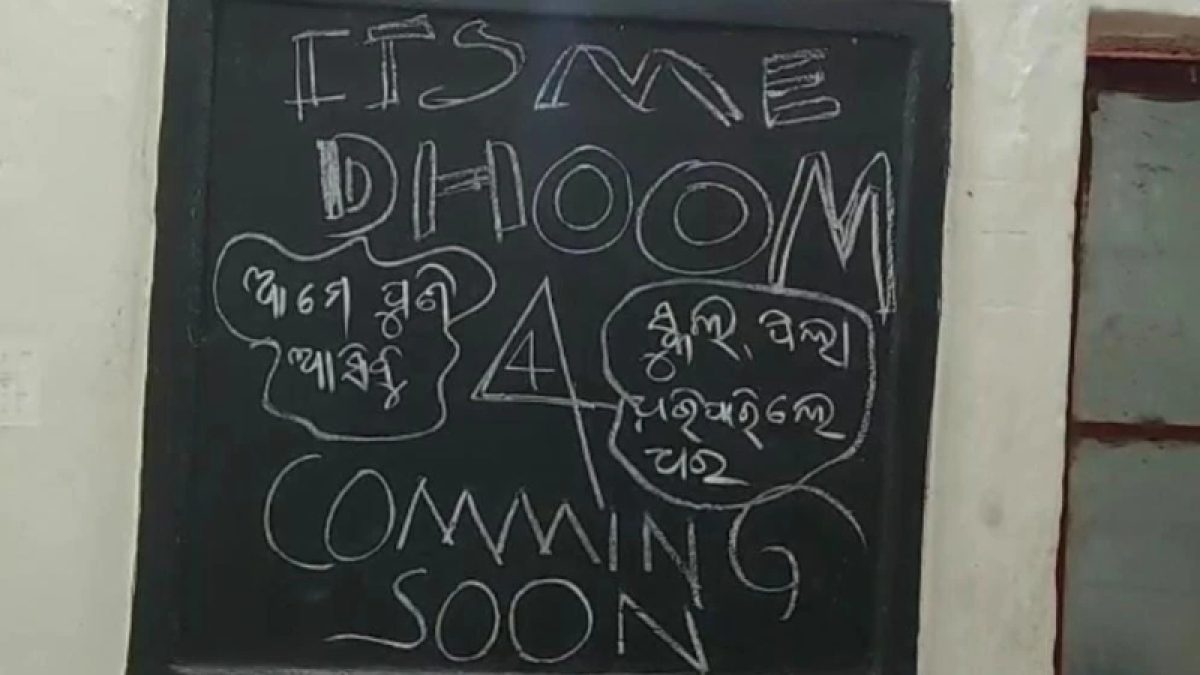 ITS ME
DHOOM
4
ଆମେ ପୁଣି
ଆସିବୁ
ସ୍କୁଲ, ପିଲା
ଧରିପାରିଲେ
ଧର
COMMING
SOON